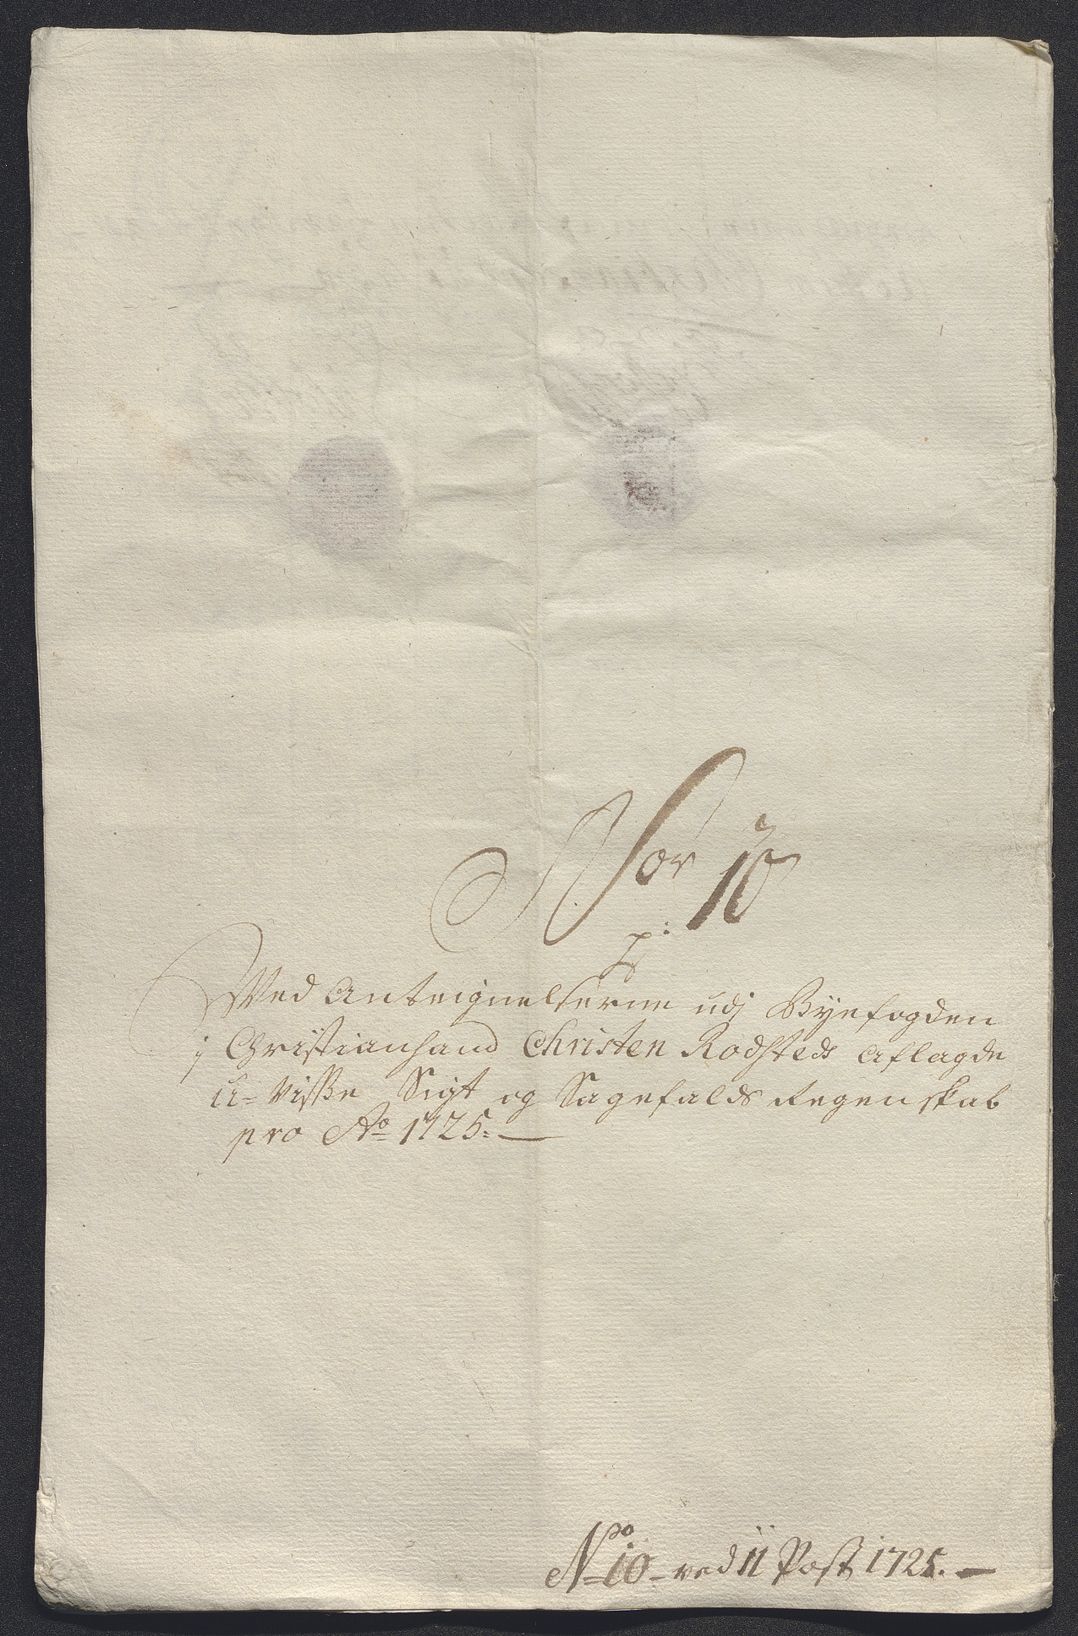 Nor 10
p:
Ved Anteignelserne udj Byefogden
j Christiansand Christen Rodsteds Aflagde
U-Visse Sigt og Sagefalds Regenskab
pro Ao 1725.
No 10 ved 11 Post 1725.